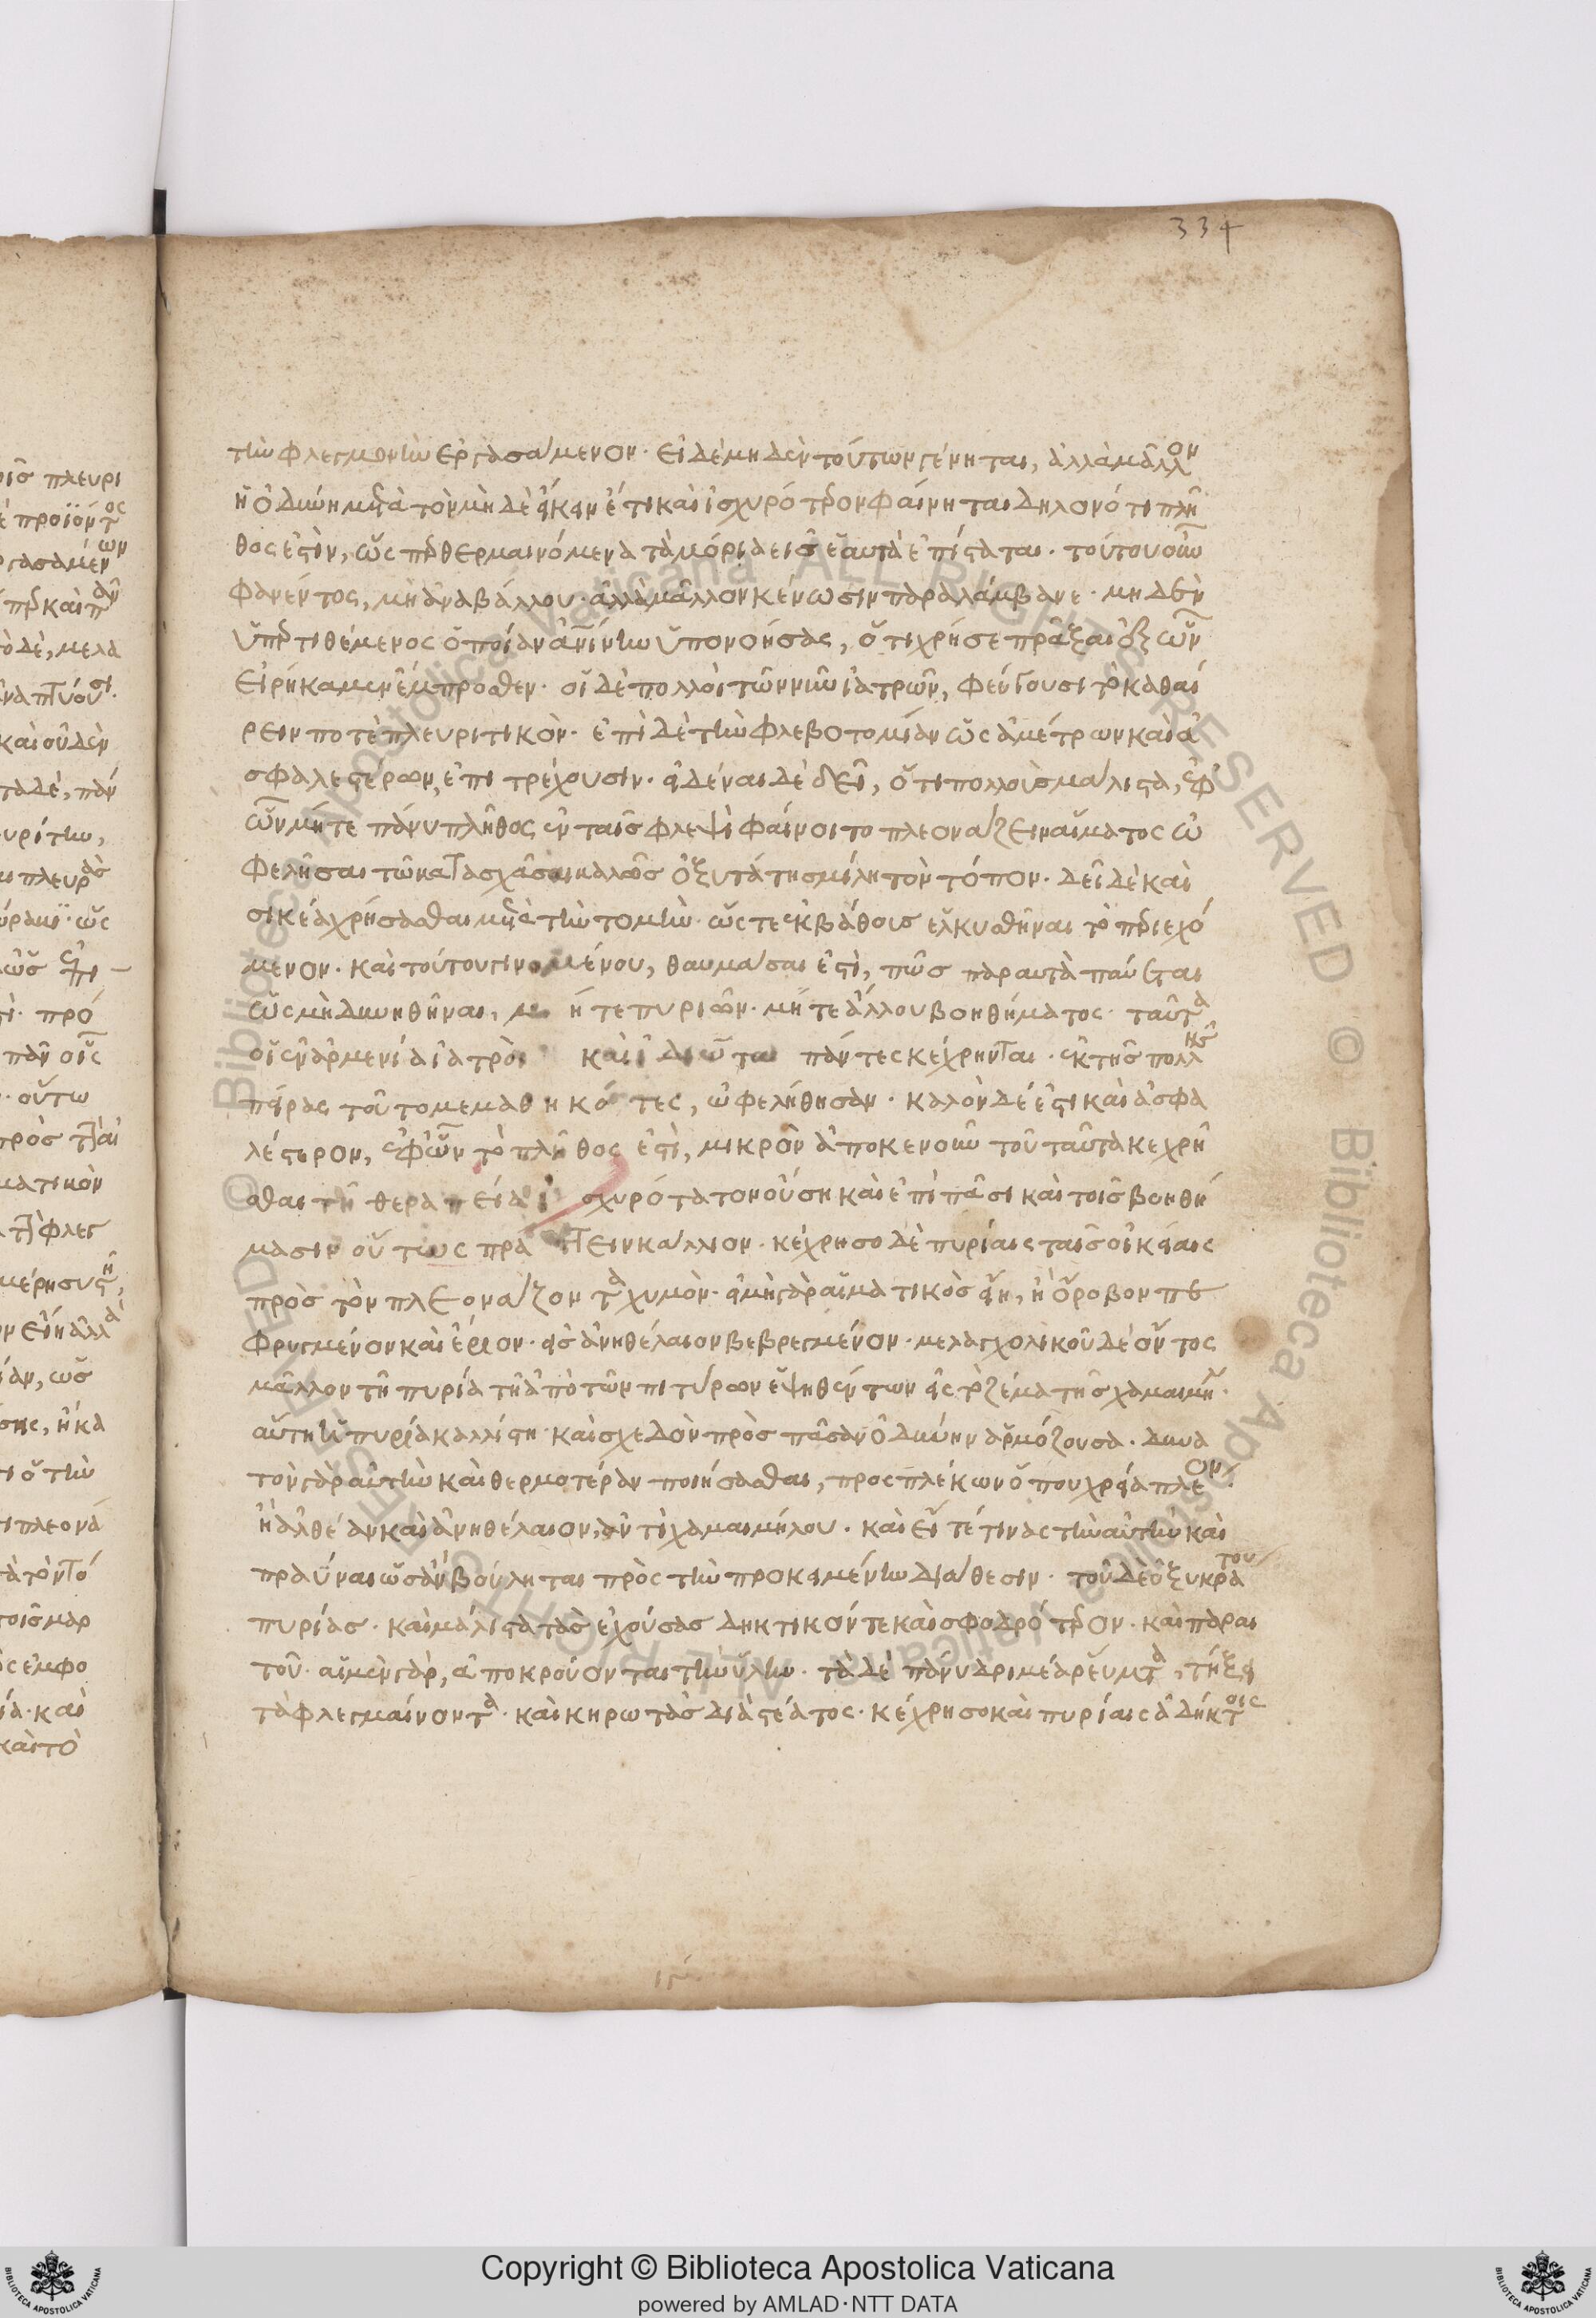 334
τὴν φλεγμονὴν ἐργασάμενον· εἰ δὲ μηδὲν τούτων γένηται, ἀλλὰ μᾶλλον
ἡ ὀδύνη μετὰ τὸ μηδὲ ἥκειν ἔτι καὶ ἰσχυρότερον φαίνηται δηλονότι πλῆ
θος ἐστὶν, ὡς περθερμαινόμενα τὰ μόρια εἰς ἑαυτὰ ἐπίσταται· τούτου οὖν
φανέντος, μὴ ἀναβάλλου· ἀλλὰ μᾶλλον κένωσιν παραλάμβανε· μηδὲν
ὑπερτιθέμενος ὁποίαν ἂν εἴην ὑπονοήσας, ὅτι χρή σε πρᾶξαι ἐξ ὧν
εἰρήκαμεν ἔμπροσθεν· οἱ δὲ πολλοὶ τῶν νῦν ἰατρῶν, φεύγουσι τὸ καθαί
ρειν ποτὲ πλευριτικὸν· ἐπὶ δὲ τὴν φλεβοτομίαν ὡς ἀμέτρων καὶ ἀ
σφαλεστέρων, ἐπιτρέχουσιν· εἰδέναι δὲ δεῖ, ὅτι πολλοὶς μάλιστα, ἐφ
ὧν μήτε πάνυ πλῆθος ἐν ταῖς φλεψὶ φαίνοιτο πλεονάζειν αἵματος ὠ
φελῆσαι τῶ κατασχάσαι καλῶς ὀξυτάτη σμίλη τὸν τόπον· δεῖ δὲ καὶ
σικύα χρήσασθαι μετὰ τὴν τομὴν· ὥστε ἐκ βάθους ἑλκυσθῆναι τὸ περιεχό
μενον· καὶ τούτου γινομένου, θαυμάσαι ἐστὶ, πῶς παραυτὰ παύεται
ὡς μὴ δεηθῆναι, μήτε πυριῶν· μήτε ἄλλου βοηθήματος· ταῦτα
οἱ ἐν ἀρμενία ἰατροὶ καὶ ἰδιῶται πάντες κέχρηνται· ἐκ τῆς πολλῆς
πείρας τοῦτο μεμαθηκότες, ὠφελήθησαν· καλὸν δέ ἐστι καὶ ἀσφα
λέστερον, ἐφ ὧν τὸ πλῆθος ἐστὶ, μικρὸν ἀποκενοῦν τοῦ ταῦτα κεχρῆ
σθαι τῆ θεραπεία ἰσχυρότατον οὔση καὶ ἐπὶ πᾶσι καὶ τοῖς βοηθή
μασιν οὕτως πράττειν κάλλιον· κέχρησο δὲ πυρίαις ταῖς οἰκείαις
πρὸς τὸν πλεονάζοντα χυμὸν· εἰ μὴ γὰρ αἱματικὸς εἴη, ἢ ὄροβον πε
φρυγμένον καὶ ἔριον· εἰς ἀνηθέλαιον βεβρεγμένον· μελαγχολικοῦ δὲ ὄντος
μᾶλλον τῆ πυρία τῆ ἀπὸ τῶν πιτύρων ἑψηθέντων εἰς τὸ ζέμα τῆς χαμαιμή·
αὕτη ἡ πυρία καλλίστη· καὶ σχεδὸν πρὸς πᾶσαν ὀδύνην ἁρμόζουσα· δυνα
τὸν γὰρ αὐτὴν καὶ θερμοτέραν ποιήσασθαι, προσπλέκων ὅπου χρεία πλέον·
ἢ ἀλθέαν καὶ ἀνηθέλαιον, ἀντὶ χαμαιμήλου· καὶ εἴ τέ τινας τὴν αὐτὴν καὶ
πραΰναι ὡς ἂν βούληται πρὸς τὴν προκειμένην διάθεσιν· τοῦ δὲ ὀξυκράτου
πυρίας· καὶ μάλιστα τὰς ἐχούσας δηκτικόν τε καὶ σφοδρότερον· καὶ παραι
τοῦ· αἱ μὲν γὰρ, ἀποκρούονται τὴν ὕλην· τὰ δὲ πάνυ δριμέα ῥεύματα, τήξει
τὰ φλεγμαίνοντα· καὶ κηρωτὰς διὰ στέατος· κέχρησο καὶ πυρίαις ἀδήκτοις